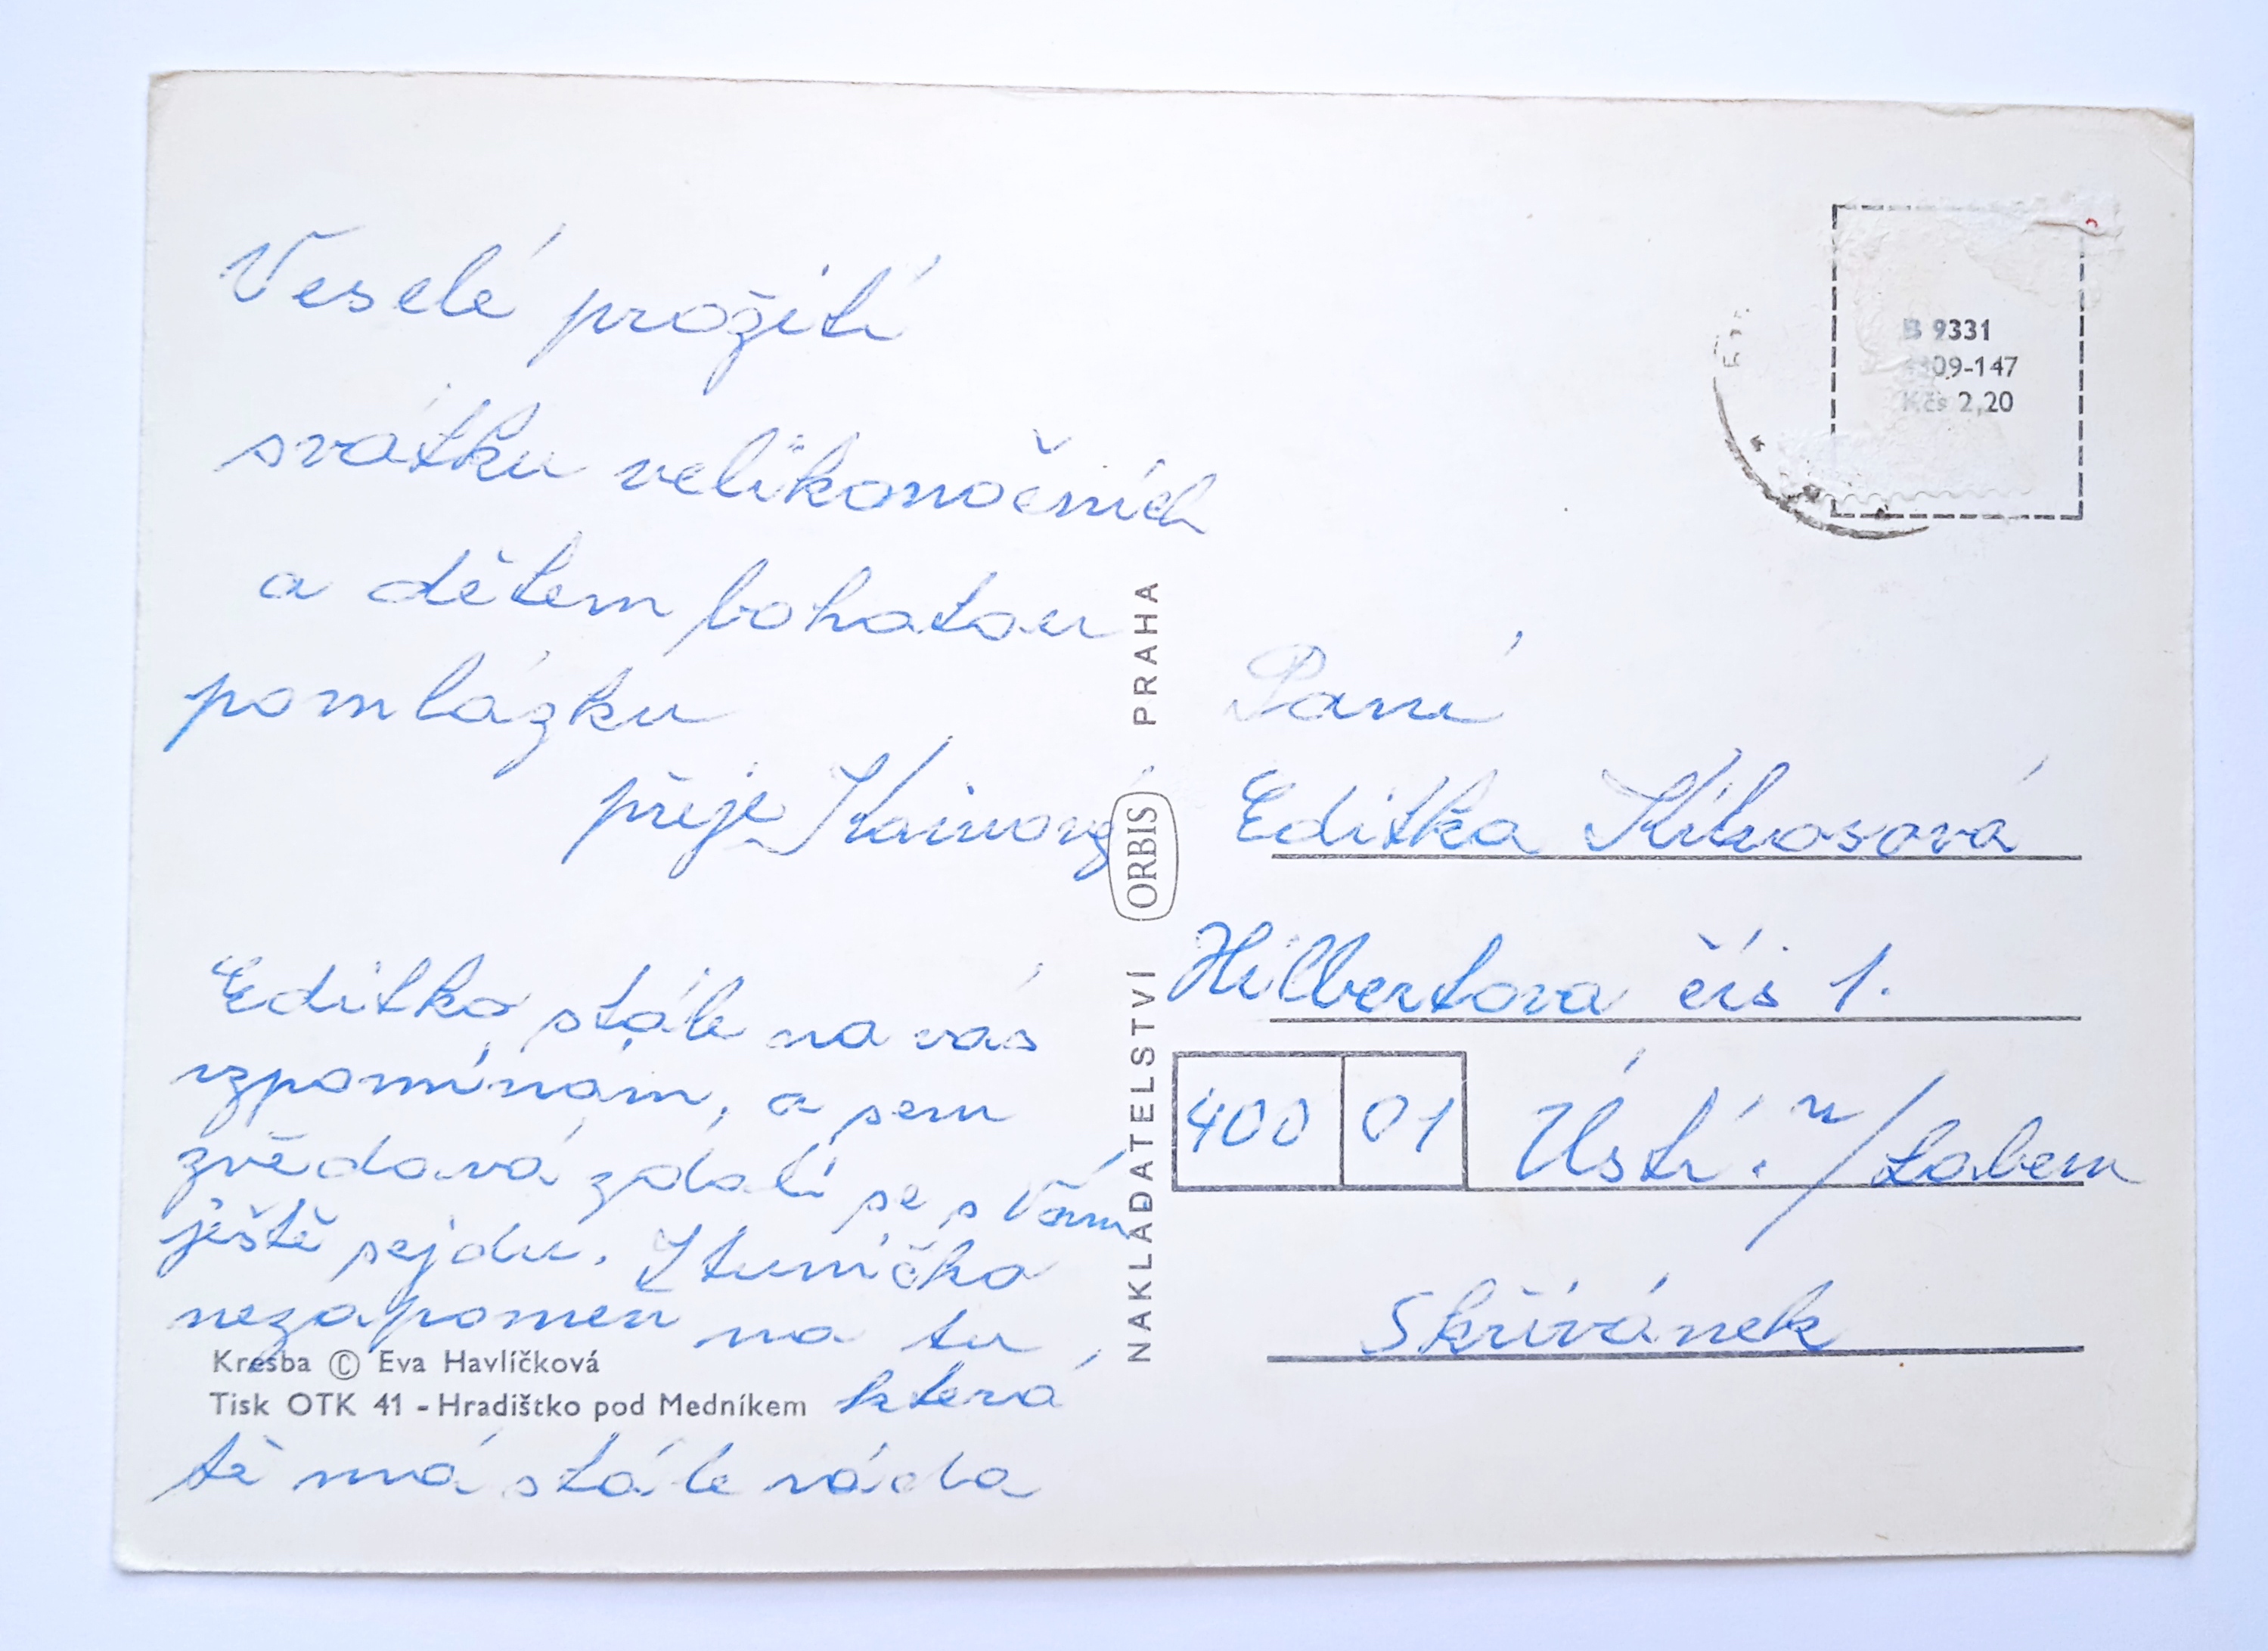 Veselé prožití
svátku velikonočních
a dětem bohatou
pomlázku
přeje
Editko stále na vás
vzpomínám, a sem
zvědavá zdali se s Vám
ještě sejdu.
nezapomeň na tu,
která
tě má stále ráda
Kresba © Eva Havlíčková
Tisk OTK 41 - Hradištko pod Medníkem
NAKLADATELSTVÍ ORBIS PRAHA
B 9331
09-147
Kčs 2,20
Paní
Editka
Hilbertova čís 1.
400 01 Ústí n/Labem
Skřivánek